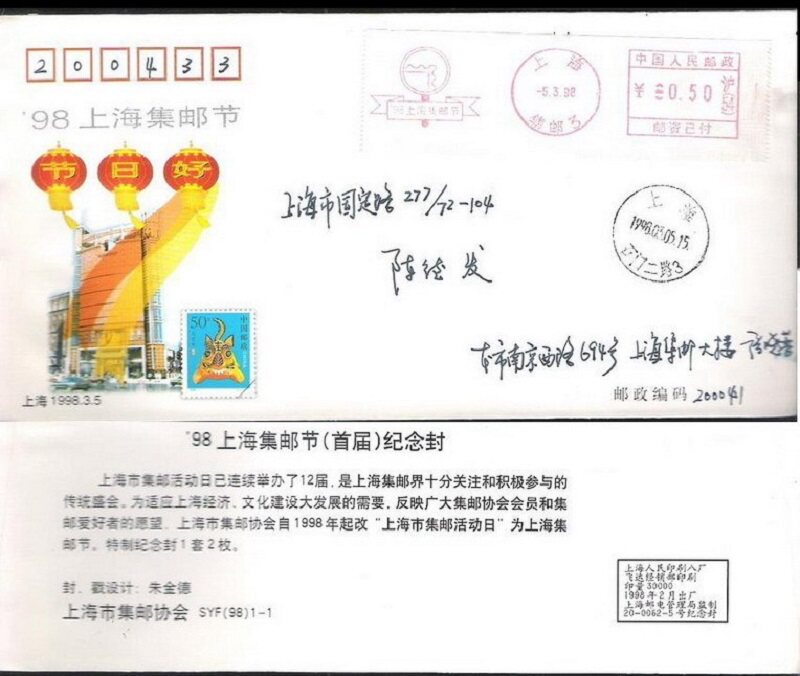 200433
'98上海集邮节
节日好
'98上海集邮节
上海
-5.3.98
集邮3
中国人民邮政
¥0.50
邮资已付
上海市国定路277/72-104
上海
1998.03.05.15
石门二路3
50分
中国邮政
本市南京西路694号 上海集邮大楼
邮政编码 200041
上海1998.3.5
'98上海集邮节(首届)纪念封
上海市集邮活动日已连续举办了12届,是上海集邮界十分关注和积极参与的
传统盛会。为适应上海经济、文化建设大发展的需要,反映广大集邮协会会员和集
邮爱好者的愿望,上海市集邮协会自1998年起改“上海市集邮活动日”为上海集
邮节。特制纪念封1套2枚。
封、戳设计:朱金德
上海市集邮协会 SYF(98)1-1
上海人民印刷八厂
飞达经销部印刷
印量30000
1998年2月出厂
上海邮电管理局监制
20-0062-5号纪念封